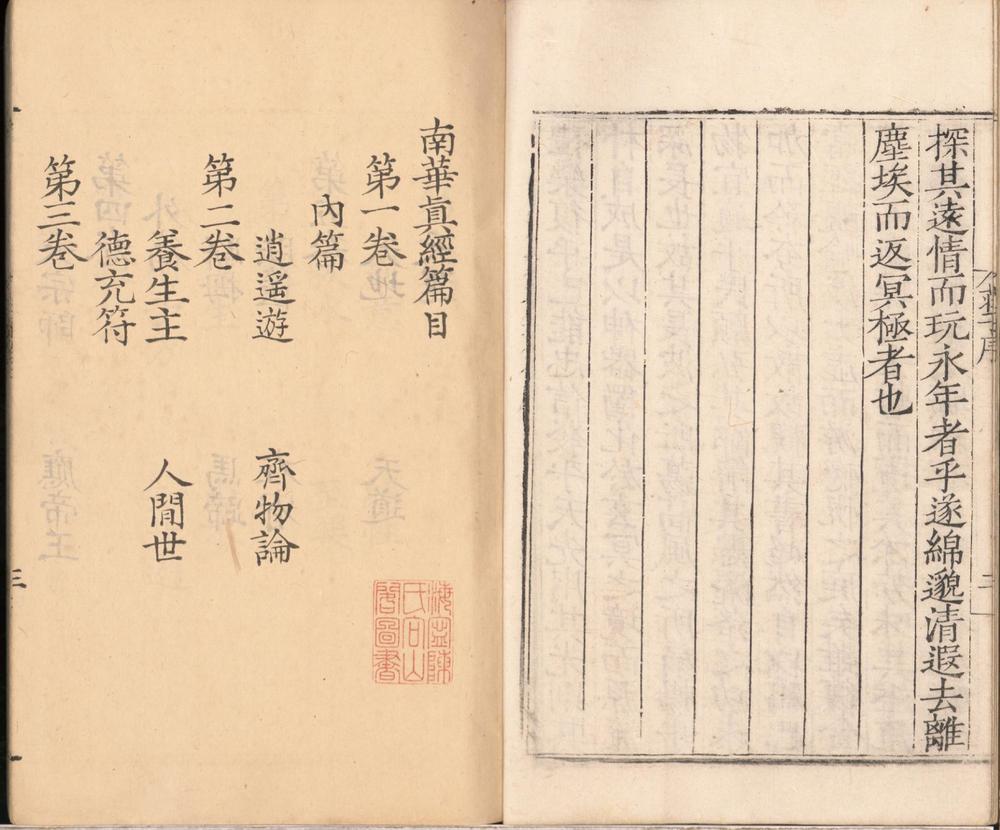 探其遠情而玩永年者乎遂綿邈清遐去離
塵埃而返冥極者也
二
南華眞經篇目
第一卷
內篇
逍遥遊 齊物論
第二卷
養生主 人閒世
德充符
第三卷
三
海鹽陳
氏向山
閣圖書